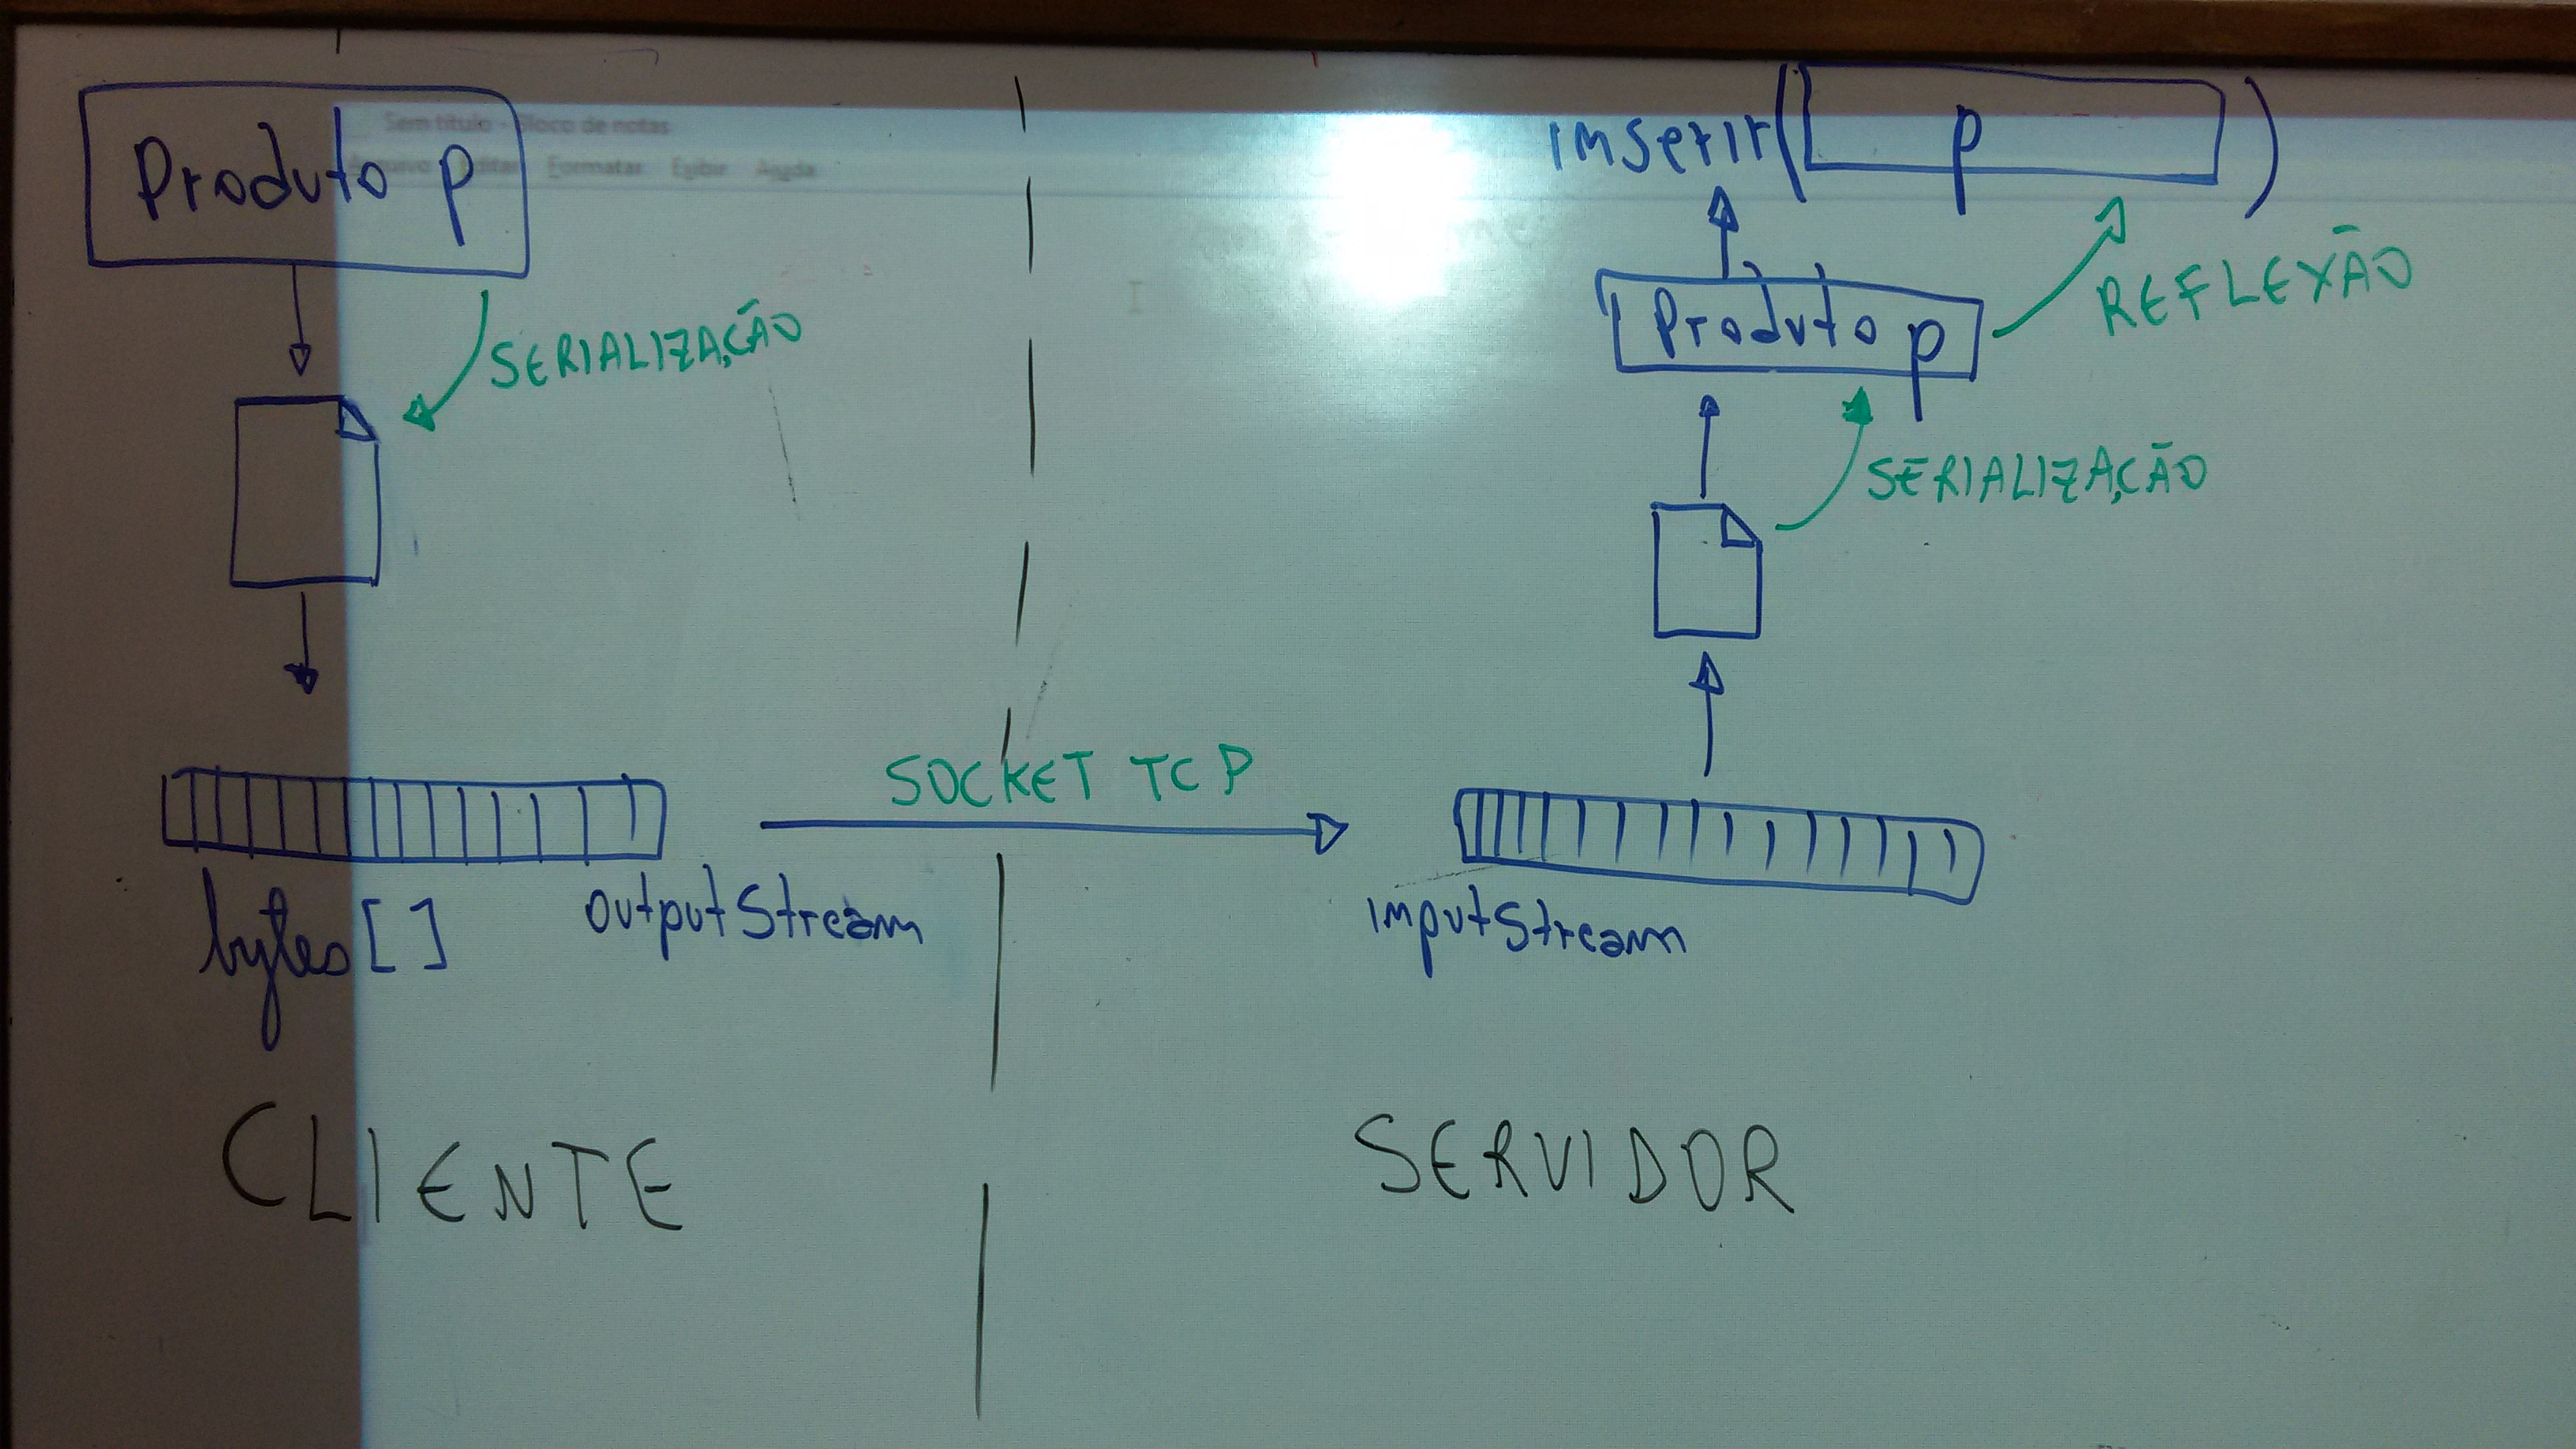 Sem título - Bloco de notas
Arquivo Editar Formatar Exibir Ajuda
Produto p
SERIALIZAÇÃO
bytes[]
OutputStream
CLIENTE
SOCKET TCP
inserir( p )
REFLEXÃO
Produto p
SERIALIZAÇÃO
inputStream
SERVIDOR